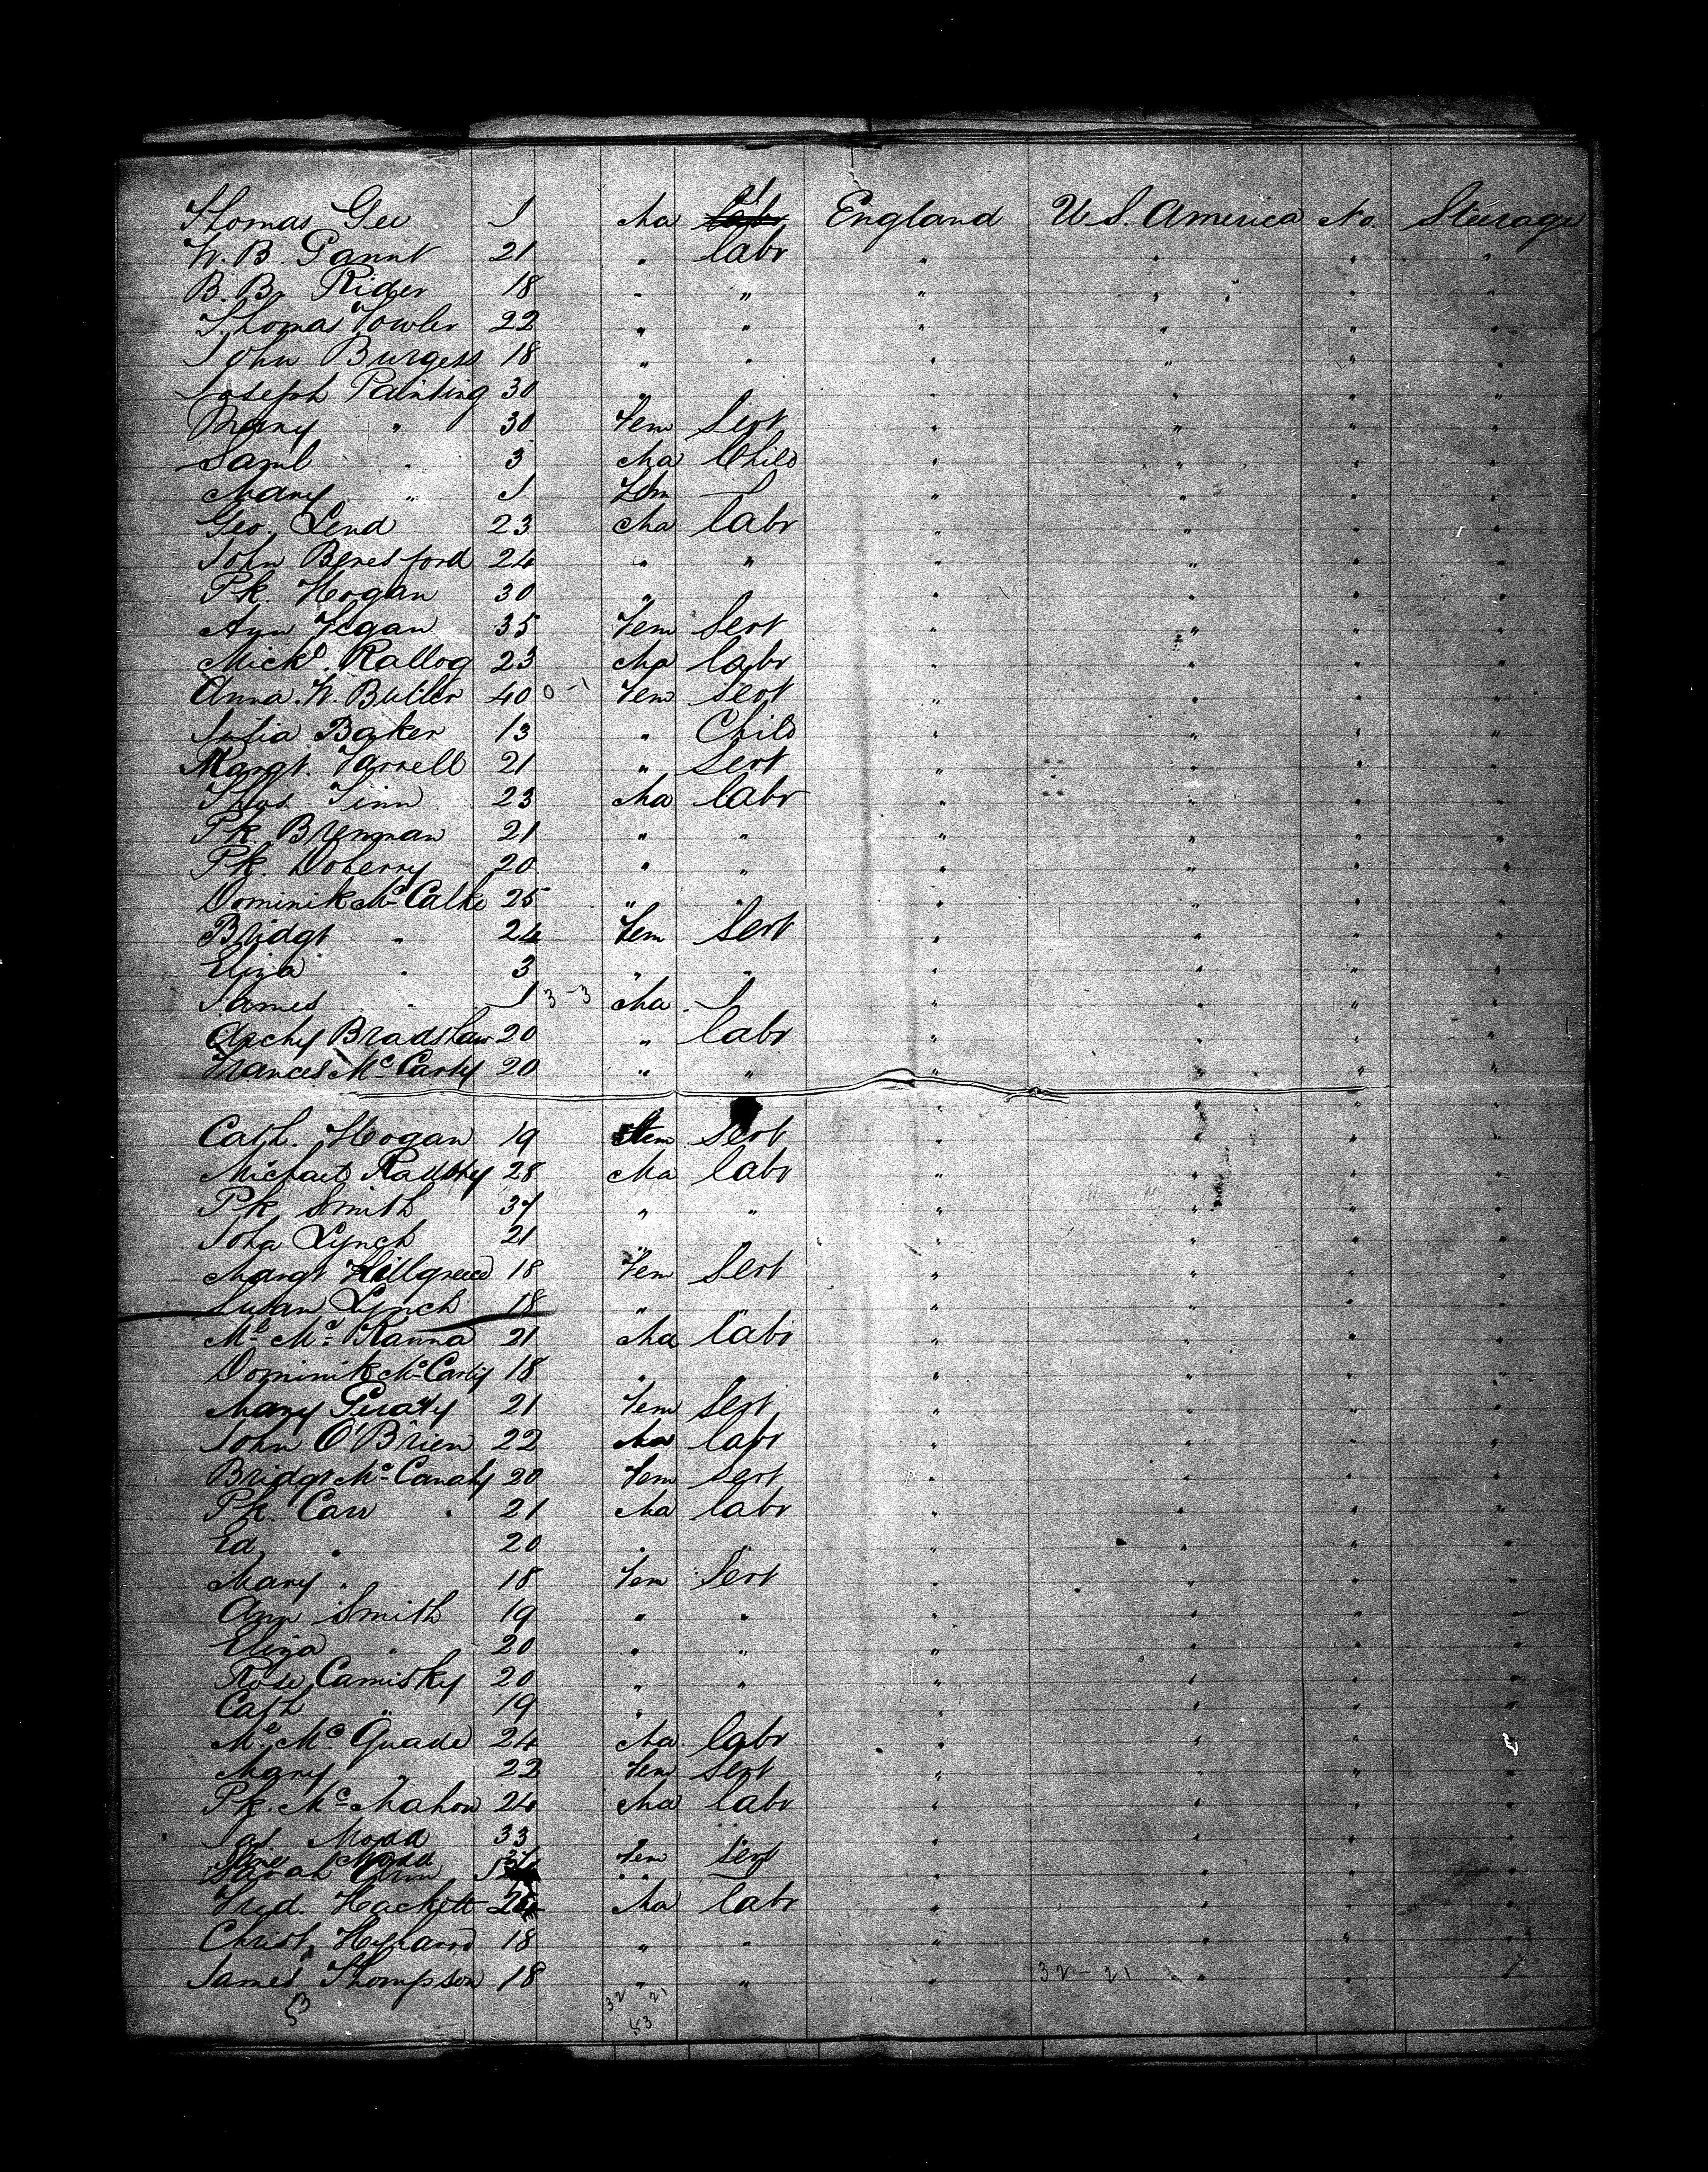 Thomas Gee 1 Ma England U.S. America No. Steerage
W. B. Gannt 21 " labr " " " "
B. B. Rider 18 " " " " " "
Thomas Fowler 22 " " " " " "
John Burgess 18 " " " " " "
Joseph Painting 30 " " " " "
Mary " 30 Fem Sert " " " "
Saml " 3 Ma Child " " " "
Mary " 1 Fem " " " "
Geo. Lend 23 Ma labr " " " "
John Beresford 24 " " " " " "
Pk. Hogan 30 " " " " "
Ann 35 Fem Sert " " " "
Mickl. Rallog 23 Ma labr " " " "
Anna. W. Butler 40 0-1 Fem Sert " " " "
Julia Baker 13 " Child " " " "
Margt. Farrell 21 " Sert " " " "
Thos Finn 23 Ma labr " " " "
Pk. Brennan 21 " " " " " "
Pk. Doherry 20 " " " " " "
Dominik 25 " " " " " "
Bridgt " 24 Fem Sert " " " "
Eliza " 3 " " " " " "
James " 1 3-3 Ma " " " "
Archy Bradshaw 20 " labr " " " "
Frances McCarty 20 " " " " " "
Cath. Hogan 19 Fem Sert " " " "
Michael 28 Ma labr " " " "
Pk Smith 37 " " " " " "
John Lynch 21 " " " " " "
Margt 18 Fem Sert " " " "
Susan Lynch 18 " " " " " "
Ml. Mc. Kanna 21 Ma labr " " " "
Dominik McCarty 18 " " " " " "
Mary Geraty 21 Fem Sert " " " "
John O'Brien 22 Ma labr " " " "
Bridgt McCanaly 20 Fem Sert " " " "
Pk. Carr 21 Ma labr " " " "
Ed " 20 " " " " " "
Mary " 18 Fem Sert " " " "
Ann Smith 19 " " " " " "
Eliza " 20 " " " " " "
Rose Camisky 20 " " " " " "
Cath " 19 " " " " "
Ml. Mc Quade 24 Ma labr " " " "
Mary " 22 Fem Sert " " " "
Pk. McMahon 24 Ma labr " " " "
Jas Modd 33 " " " " " "
Jane Modd Fem Sert
Sarah Ann
Fred. Hackett 24 Ma labr " " " "
Christ. 18 " " " " " "
James Thompson 18 " " " 32-21 " "
53 32 21
53